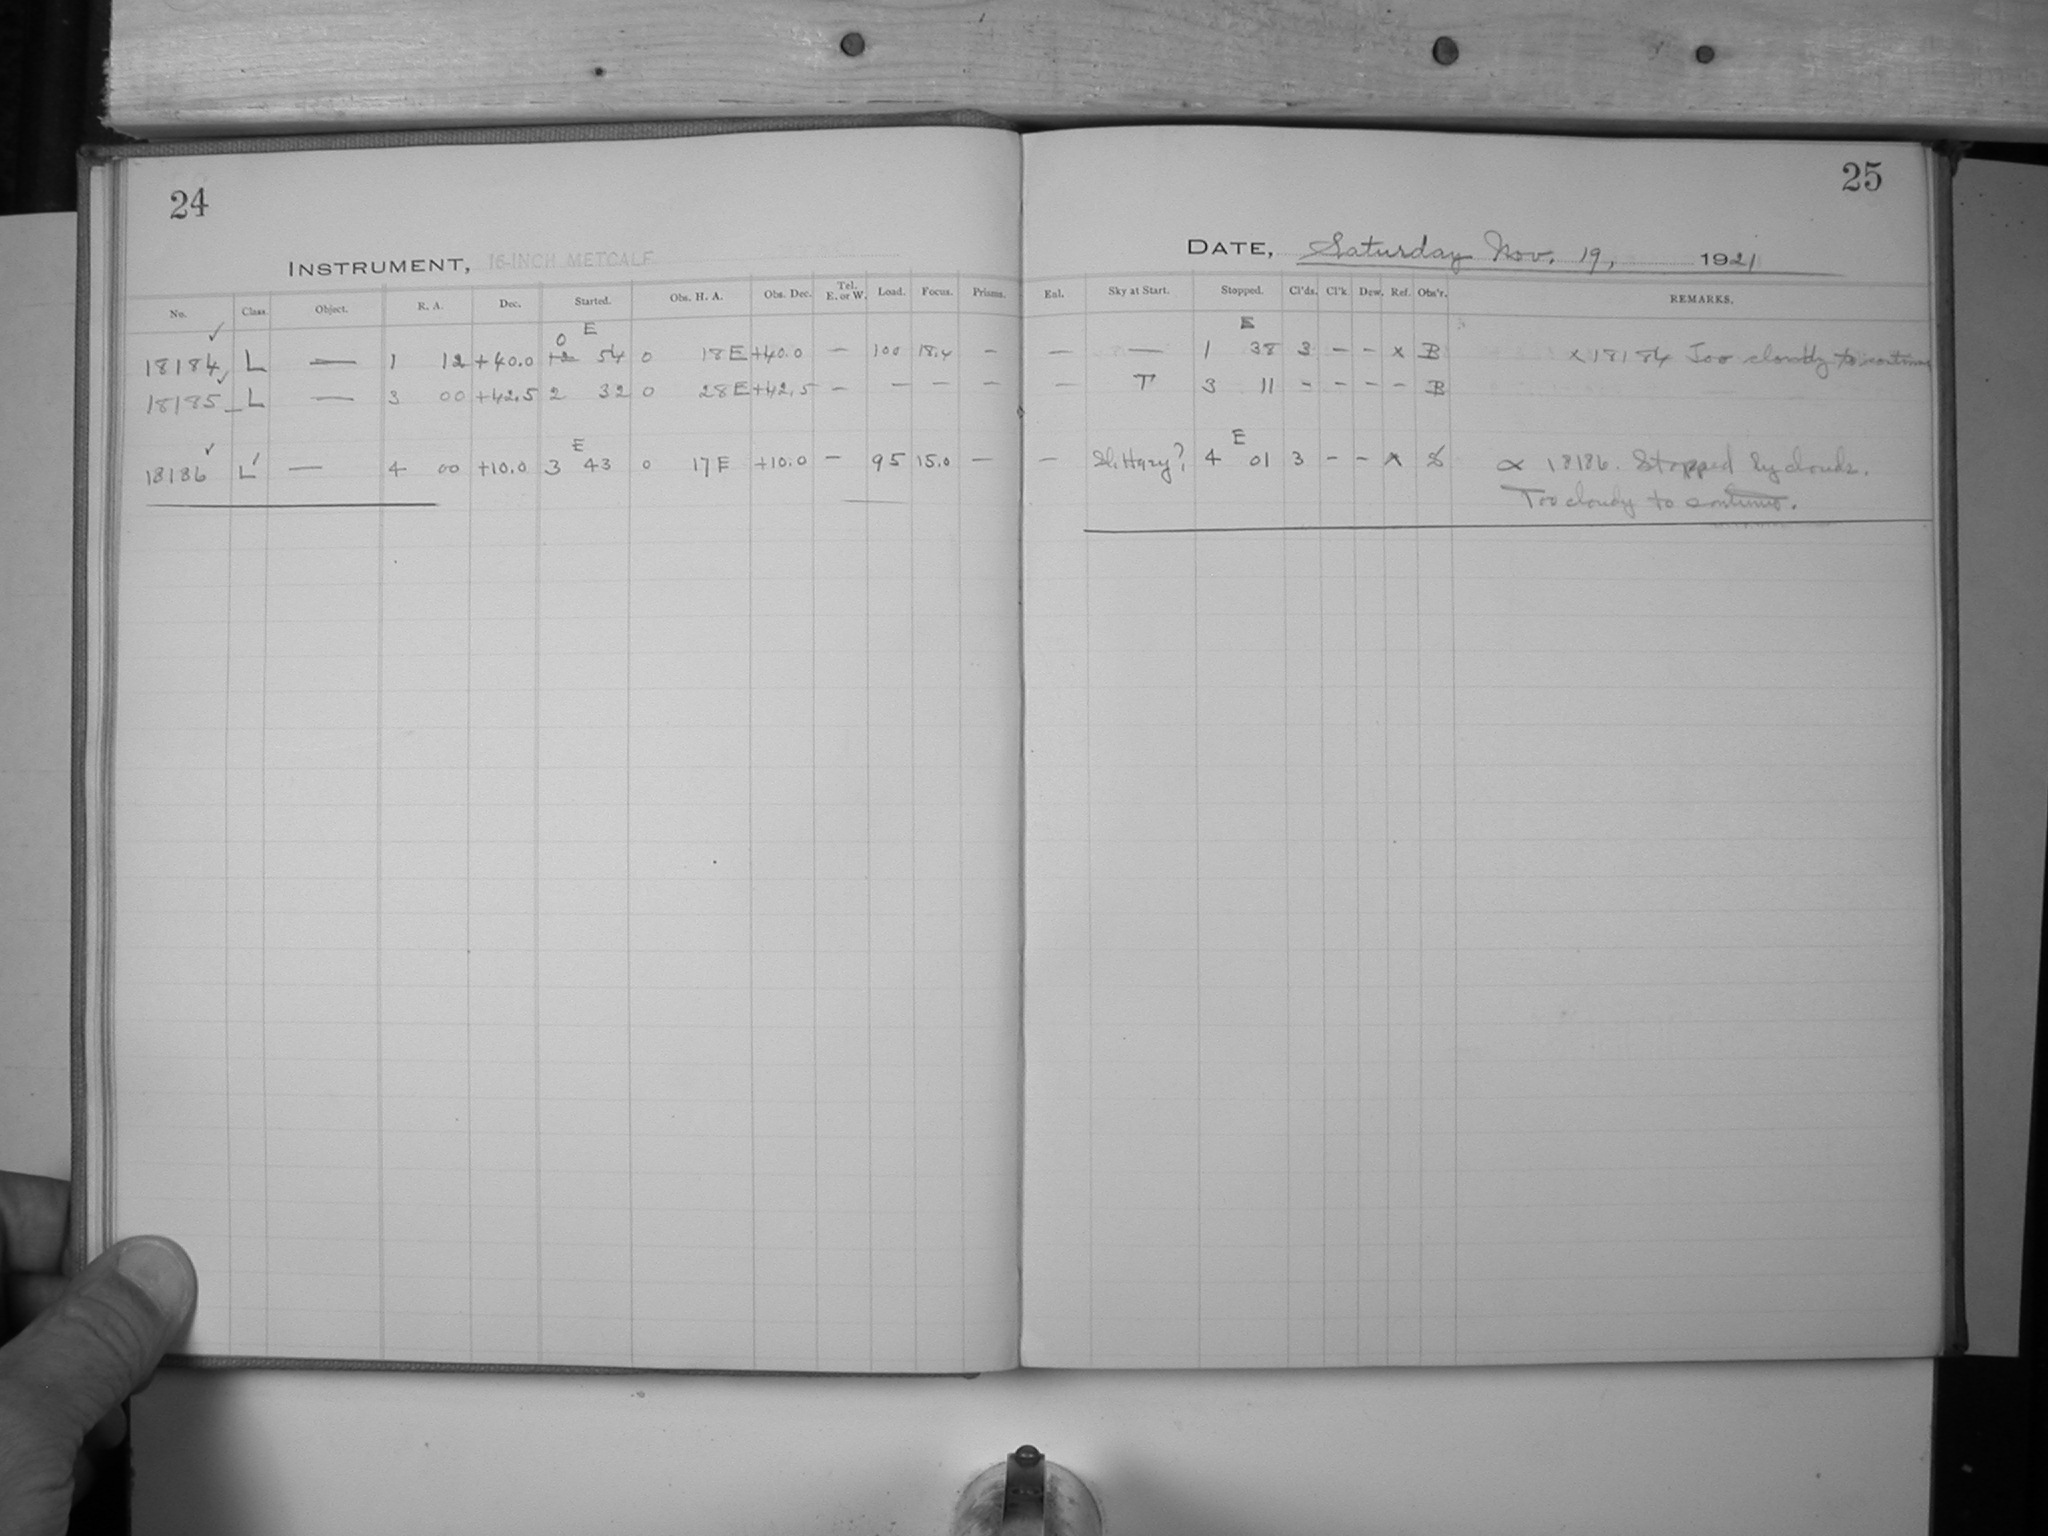 24
INSTRUMENT, 16-INCH METCALF
No. Class. Object. R. A. Dec. Started. Obs. H. A. Obs. Dec. Tel. E. or W. Load. Focus. Prisms.
0 E
18184 L — 1 12 +40.0 54 0 18 E +40.0 — 100 18.4 —
18185 L — 3 00 +42.5 2 32 0 28 E +42.5 — — — —
E
18186 L — 4 00 +10.0 3 43 0 17 E +10.0 — 95 15.0 —
25
DATE, Saturday Nov. 19, 1921
Eul. Sky at Start. Stopped. Cl'ds. Cl'k. Dew. Ref. Obs'r. REMARKS.
E
— — 1 38 3 — — x B x 18184 Too cloudy to continue
— T 3 11 — — — — B
E
— Sl. Hazy? 4 01 3 — — x 18186. Stopped by clouds.
Too cloudy to continue.